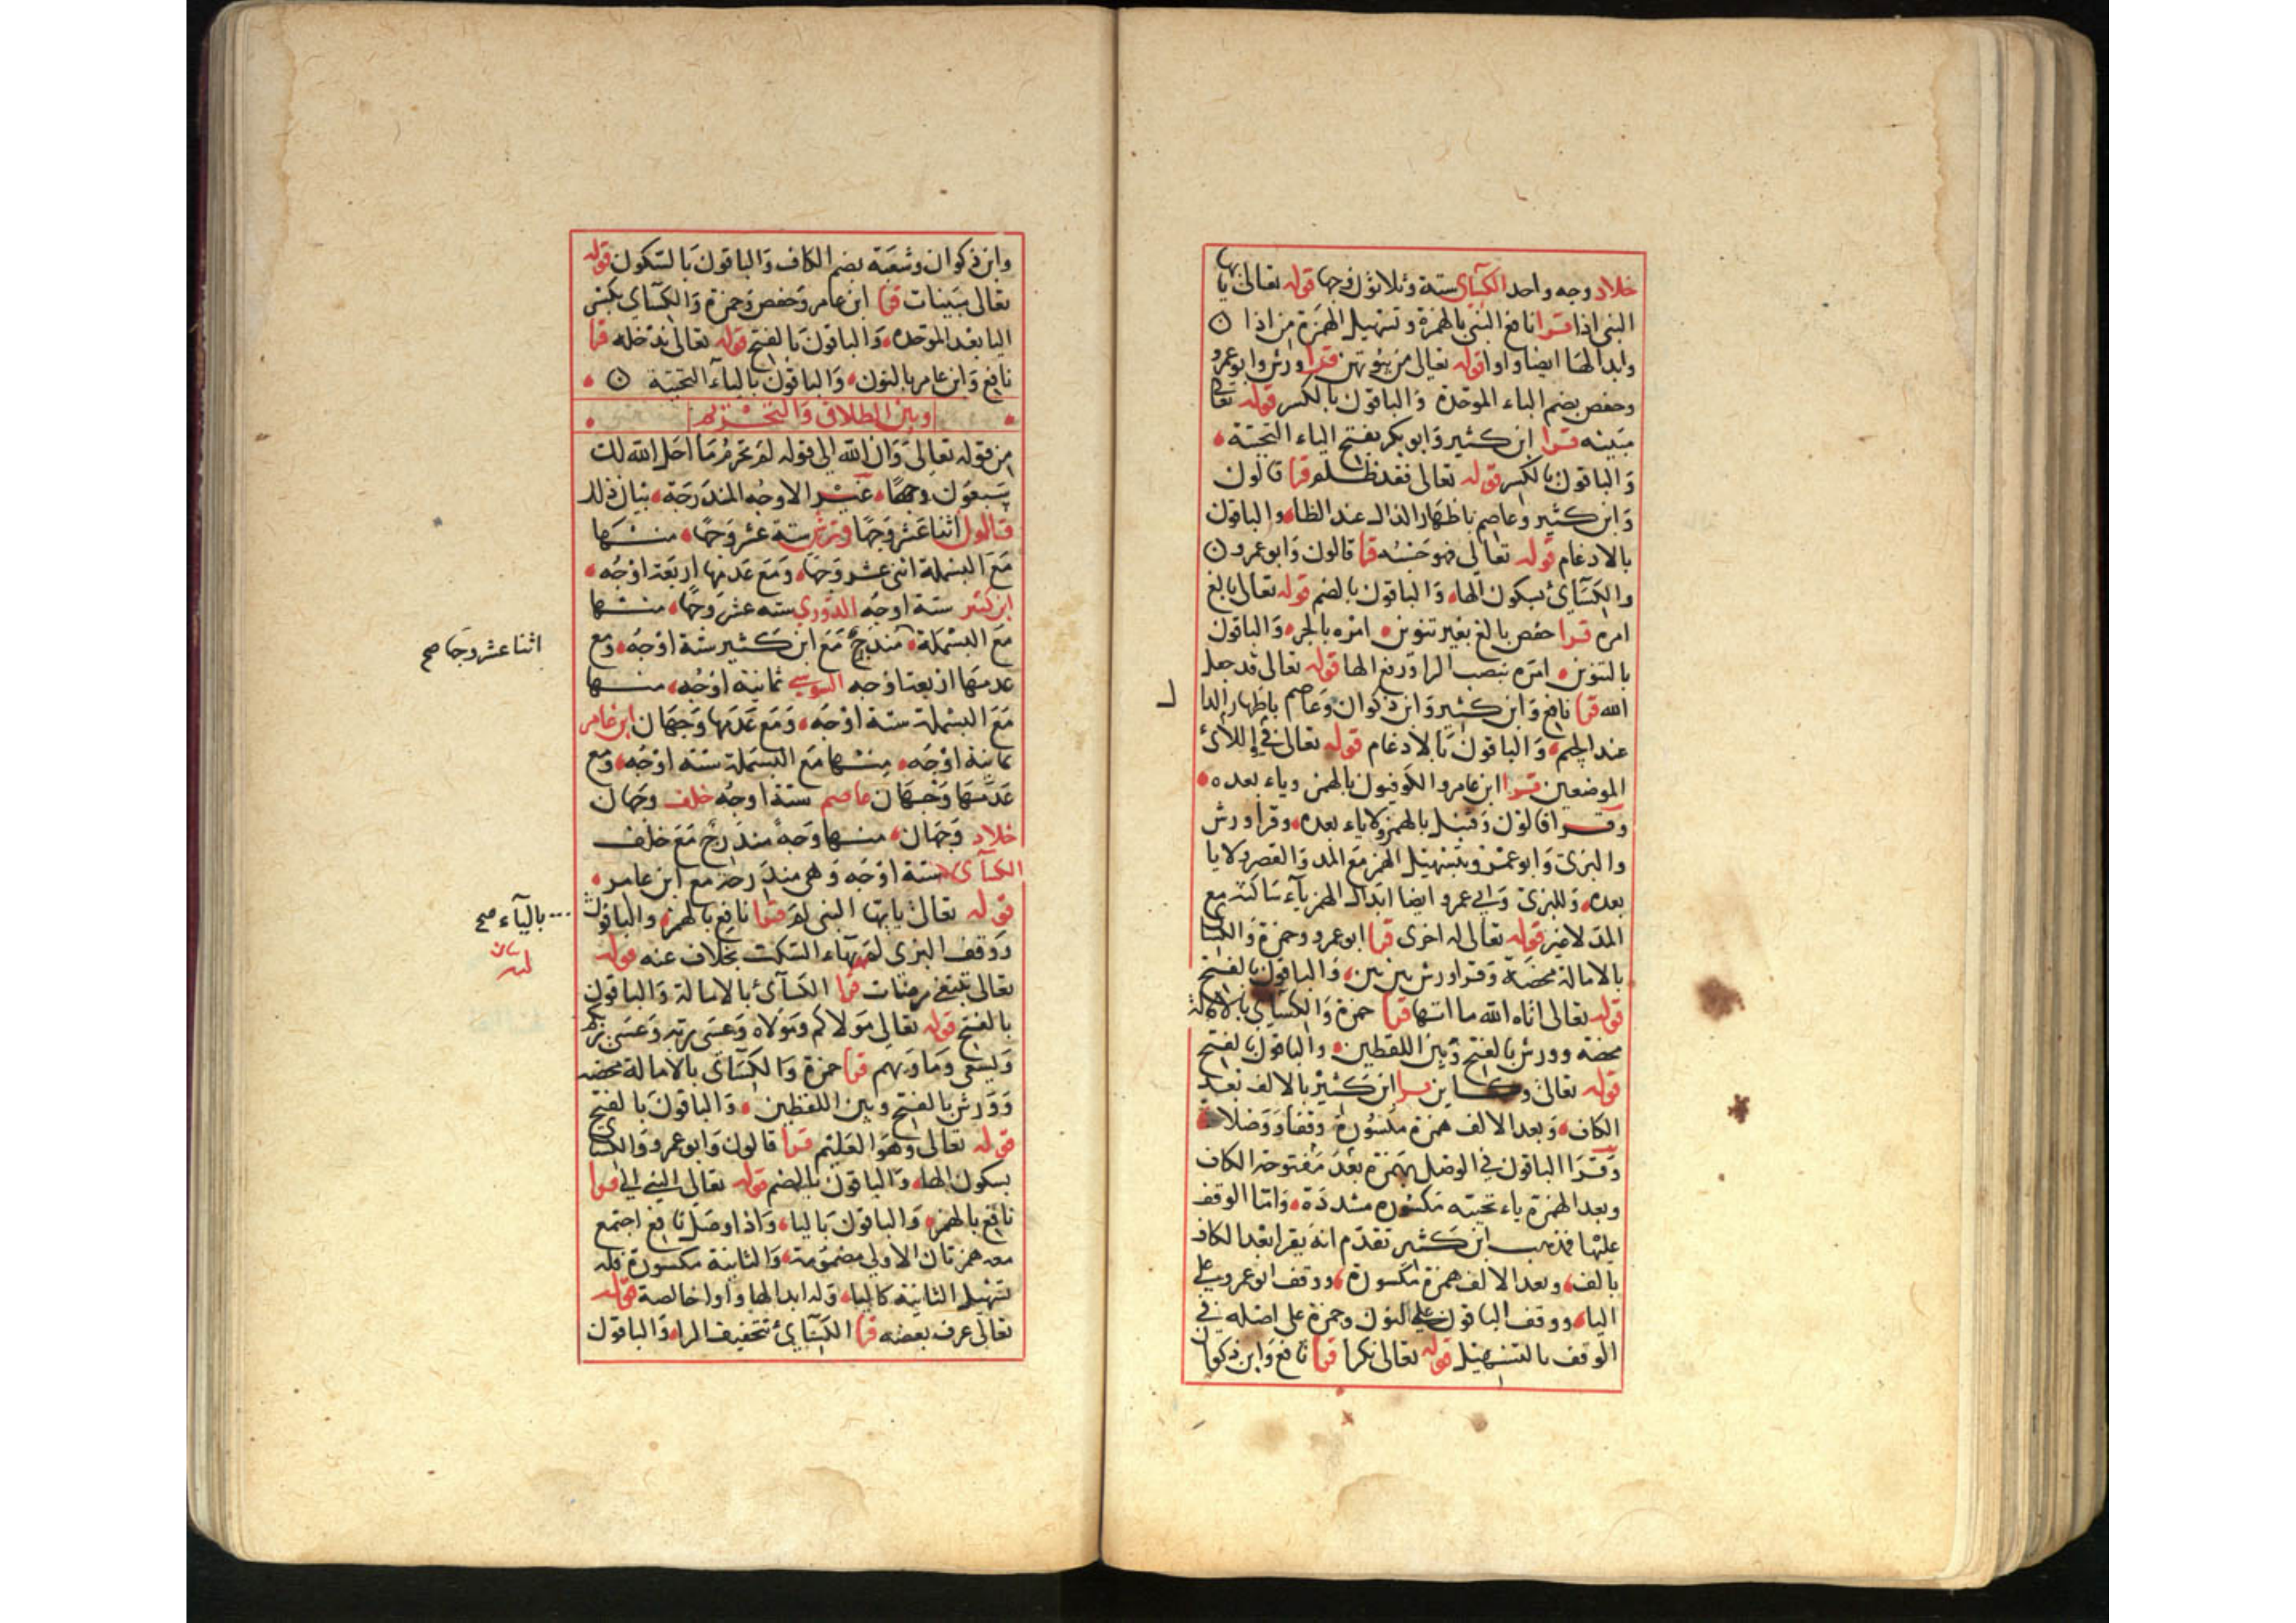 خلاد وجه واحد الكسآي ستة وثلاثون وجها قوله تعالى يا ايها
النبى اذا قرا نافع النبئ بالهمزة وتسهيل الهمزة من اذا ۞
وابدالها ايضا واوا قوله تعالى من بيوتهن قرا ورش وابوعمرو
وحفص بضم الباء الموحدة والباقون بالكسر قوله تعالى
مبينه قرا ابن كثير وابو بكر بفتح الياء التحتية
والباقون بالكسر قوله تعالى فقد ظلم قرا قالون
وابن كثير وعاصم باظهار الدال عند الظاء والباقون
بالادغام قوله تعالى فهو حسبه قرا قالون وابو عمرو ۞
والكسآئى بسكون الهاء والباقون بالضم قوله تعالى بالغ
امره قرا حفص بالغ بغير تنوين امره بالجر والباقون
بالتنوين امره بنصب الرا ورفع الها قوله تعالى قد جعل
الله قرا نافع وابن كثير وابن ذكوان وعاصم باظهار الدا
عند الجيم والباقون بالادغام قوله تعالى واللائى فى
الموضعين قرا ابن عامر والكوفيون بالهمز وياء بعده
وقرا قالون وقنبل بالهمز ولا ياء بعده وقرا ورش
والبزى وابو عمرو بتسهيل الهمز مع المد والقصر ولا يا
بعده وللبزى وابي عمرو ايضا ابدال الهمز يآء ساكنة مع
المد لا غير قوله تعالى له اخرى قرا ابو عمرو وحمزة والكسا
بالامالة محضة وقرا ورش بين بين والباقون بالفتح
قوله تعالى اتاه الله ما اتيها قرا حمزة والكسآي بالامالة
محضة وورش بالفتح وبين اللفظين والباقون بالفتح
قوله تعالى وكاين قرا ابن كثير بالالف بعد
الكاف وبعد الالف همزة مكسورة وقفا ووصلا
وقرا الباقون فى الوصل بهمزة بعد مفتوحة الكاف
وبعد الهمزة ياء تحتية مكسورة مشددة واما الوقف
عليها فمذهب ابن كثير تقدم انه يقرا بعد الكاف
بالف وبعد الالف همزة مكسورة ووقف ابو عمرو على
اليا ووقف الباقون على النون وحمزة على اصله في
الوقف بالتسهيل قوله تعالى نكرا قرا نافع وابن ذكوان
وابن ذكوان وشعبة بضم الكاف والباقون بالسكون قوله
تعالى مبينات قرا ابن عامر وحفص وحمزة والكسآي بكسر
اليا بعد الموحده والباقون بالفتح قوله تعالى ندخله قرا
نافع وابن عامر بالنون والباقون بالياء التحتية ۞
وبين الطلاق والتحريم
من قوله تعالى وان الله الى قوله لم تحرم ما احل الله لك
سبعون وجها غير الاوجه المندرجة بيان ذلك
قالون اثنا عشر وجها ورش ستة عشر وجها منها
مع البسملة اثنى عشر وجها ومع عدمها اربعة اوجه
ابن كثير ستة اوجه الدوري سته عشر وجها منها
مع البسملة مندرج مع ابن كثير ستة اوجه ومع
عدمها اربعة اوجه السوسي ثمانية اوجه منها
مع البسملة ستة اوجه ومع عدمها وجهان ابن عامر
ثمانية اوجه منها مع البسملة ستة اوجه ومع
عدمها وجهان عاصم ستة اوجه خلف وجهان
خلاد وجهان منها وجه مندرج مع خلف
الكسآى ستة اوجه وهى مندرجة مع ابن عامر
قوله تعالى يايها النبى لم قرا نافع بالهمز والباقون
ووقف البزى لم بهاء السكت بخلاف عنه قوله
تعالى تبتغى مرضات قرا الكسآئ بالامالة والباقون
بالفتح قوله تعالى مولاكم ومولاه وعسى ربه وعسى ربكم
ويسعى وماويهم قرا حمزة والكسآى بالامالة محضه
وورش بالفتح وبين اللفظين والباقون بالفتح
قوله تعالى وهو العليم قرا قالون وابو عمرو والكسآى
بسكون الهاء والباقون بالضم قوله تعالى النبى الى قرا
نافع بالهمز والباقون باليا واذا وصل نافع اجتمع
معه همزتان الاولى مضمومة والثانية مكسورة فله
تسهيل الثانية كاليا وله ابدالها واوا خالصة قوله
تعالى عرف بعضه قرا الكسآئ بتخفيف الراء والباقون
اثنا عشر وجها صح
باليآء صح